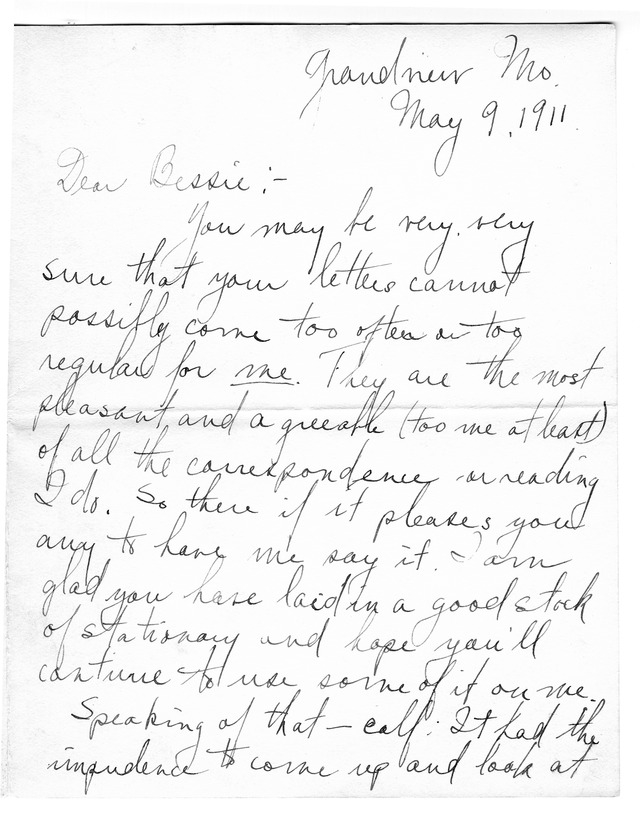 Grandview Mo.
May 9, 1911.
Dear Bessie:-
You may be very, very
sure that your letters cannot
possibly come too often or too
regular for me. They are the most
pleasant and agreeable (too me at least)
of all the correspondence or reading
I do. So there if it pleases you
any to have me say it. I am
glad you have laid in a good stock
of stationary and hope you'll
continue to use some of it on me.
Speaking of that - calf: It had the
impudence to come up and look at